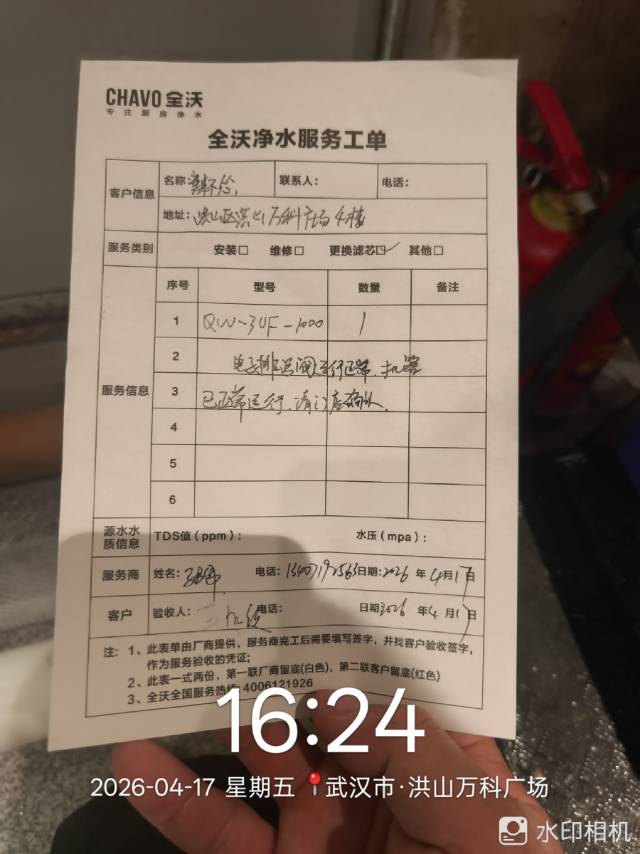 CHAVO 全沃
专注厨房净水
全沃净水服务工单
客户信息
名称: 联系人: 电话:
地址: 洪山区洪山万科广场4楼
服务类别 安装□ 维修□ 更换滤芯☑ 其他□
服务信息
序号 型号 数量 备注
1 QW-3UF-1000 1
2 电子排污阀运行正常.机器
3 已正常运行.请门店确认.
4
5
6
源水水质信息 TDS值(ppm): 水压(mpa):
服务商 姓名: 电话: 13407192563 日期:2026年4月17日
客户 验收人: 电话: 日期2026年4月17日
注: 1、此表单由厂商提供，服务商完工后需要填写签字，并找客户验收签字，
作为服务验收的凭证;
2、此表一式两份，第一联厂商留底(白色)，第二联客户留底(红色)
3、全沃全国服务热线:4006121926
16:24
2026-04-17 星期五 武汉市·洪山万科广场
水印相机